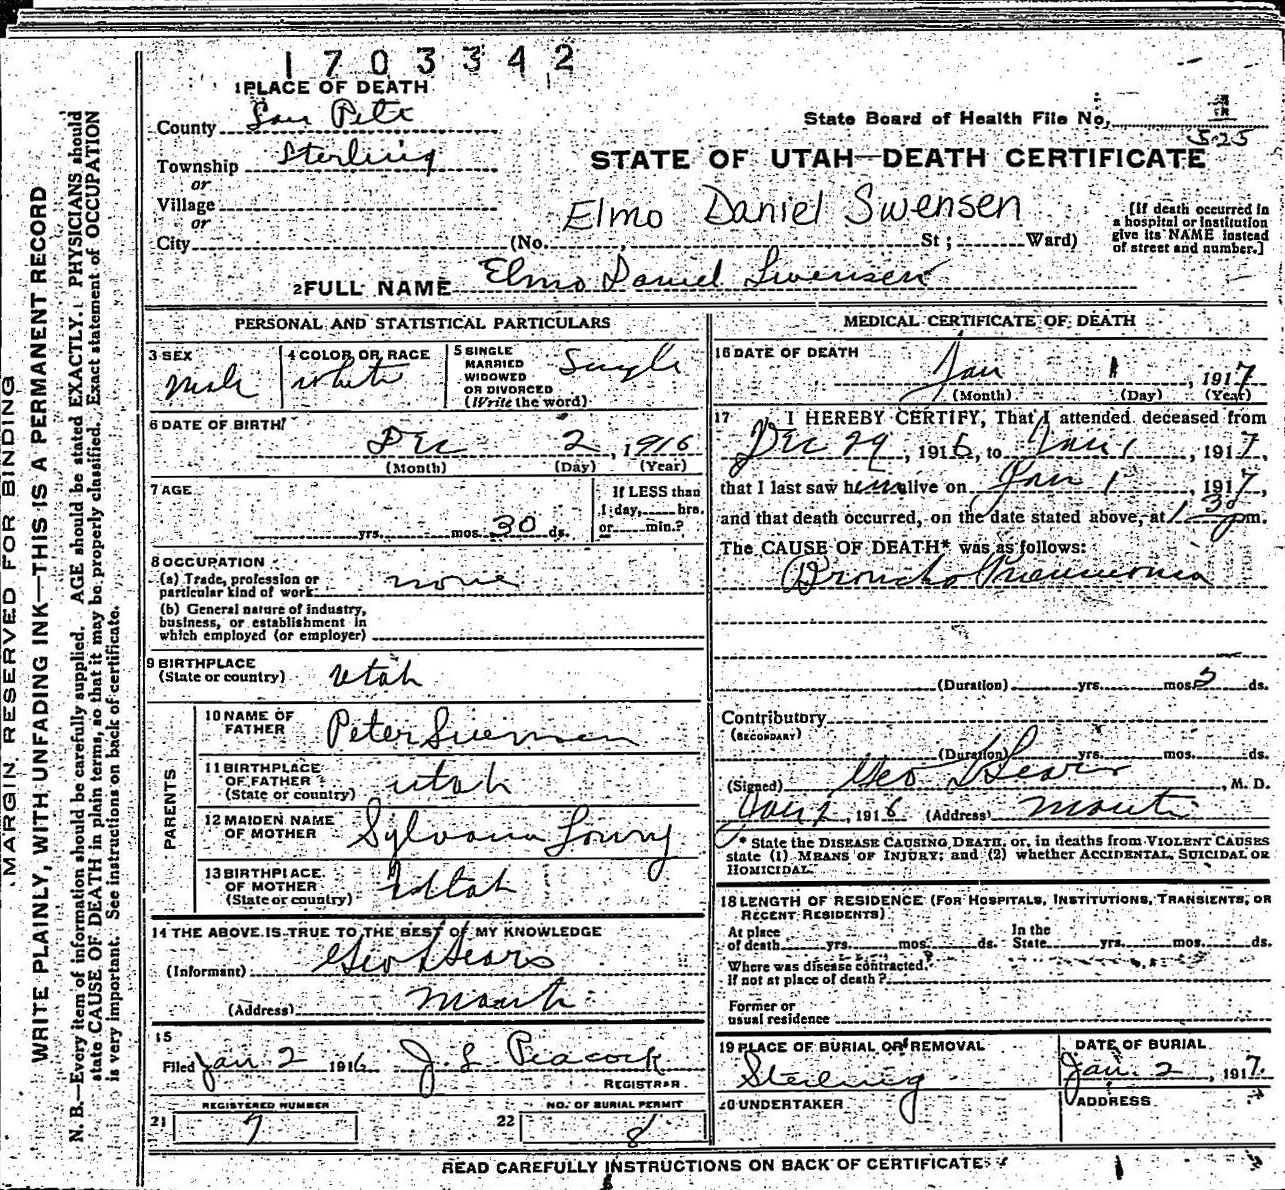 1703342
1 PLACE OF DEATH
County San Pete
State Board of Health File No. 525
Township Sterling
or
Village
or
City (No. , St; Ward)
STATE OF UTAH—DEATH CERTIFICATE
Elmo Daniel Swensen
[If death occurred in
a hospital or institution
give its NAME instead
of street and number.]
2 FULL NAME Elmo Daniel Swensen
PERSONAL AND STATISTICAL PARTICULARS
3 SEX
Male
4 COLOR OR RACE
White
5 SINGLE
MARRIED
WIDOWED
OR DIVORCED
(Write the word)
Single
6 DATE OF BIRTH
Dec 2, 1916
(Month) (Day) (Year)
7 AGE
yrs. mos. 30 ds.
If LESS than
1 day, hrs.
or min.?
8 OCCUPATION
(a) Trade, profession or
particular kind of work none
(b) General nature of industry,
business, or establishment in
which employed (or employer)
9 BIRTHPLACE
(State or country) Utah
PARENTS
10 NAME OF
FATHER Peter Swensen
11 BIRTHPLACE
OF FATHER
(State or country) Utah
12 MAIDEN NAME
OF MOTHER Sylvania Lowry
13 BIRTHPLACE
OF MOTHER
(State or country) Utah
14 THE ABOVE IS TRUE TO THE BEST OF MY KNOWLEDGE
(Informant) Geo L Sears
(Address) Manti
15
Filed Jan. 2 1916 J. L. Peacock
REGISTRAR
REGISTERED NUMBER
21 7
NO. OF BURIAL PERMIT
22 8
MEDICAL CERTIFICATE OF DEATH
16 DATE OF DEATH
Jan 1, 1917
(Month) (Day) (Year)
17 I HEREBY CERTIFY, That I attended deceased from
Dec 29, 1916, to Jan 1, 1917,
that I last saw him alive on Jan 1, 1917,
and that death occurred, on the date stated above, at 1 30 pm.
The CAUSE OF DEATH* was as follows:
Broncho Pneumonia
(Duration) yrs. mos. 3 ds.
Contributory
(SECONDARY)
(Duration) yrs. mos. ds.
(Signed) Geo L Sears, M. D.
Jan 2, 1916 (Address) Manti
* State the DISEASE CAUSING DEATH, or, in deaths from VIOLENT CAUSES
state (1) MEANS OF INJURY; and (2) whether ACCIDENTAL, SUICIDAL OR
HOMICIDAL.
18 LENGTH OF RESIDENCE (FOR HOSPITALS, INSTITUTIONS, TRANSIENTS, OR
RECENT RESIDENTS)
At place
of death yrs. mos. ds.
In the
State yrs. mos. ds.
Where was disease contracted,
if not at place of death?
Former or
usual residence
19 PLACE OF BURIAL OR REMOVAL
Sterling
DATE OF BURIAL
Jan. 2, 1917.
20 UNDERTAKER
ADDRESS
READ CAREFULLY INSTRUCTIONS ON BACK OF CERTIFICATE
MARGIN RESERVED FOR BINDING
WRITE PLAINLY, WITH UNFADING INK—THIS IS A PERMANENT RECORD
N. B.—Every item of information should be carefully supplied. AGE should be stated EXACTLY. PHYSICIANS should
state CAUSE OF DEATH in plain terms, so that it may be properly classified. Exact statement of OCCUPATION
is very important. See instructions on back of certificate.